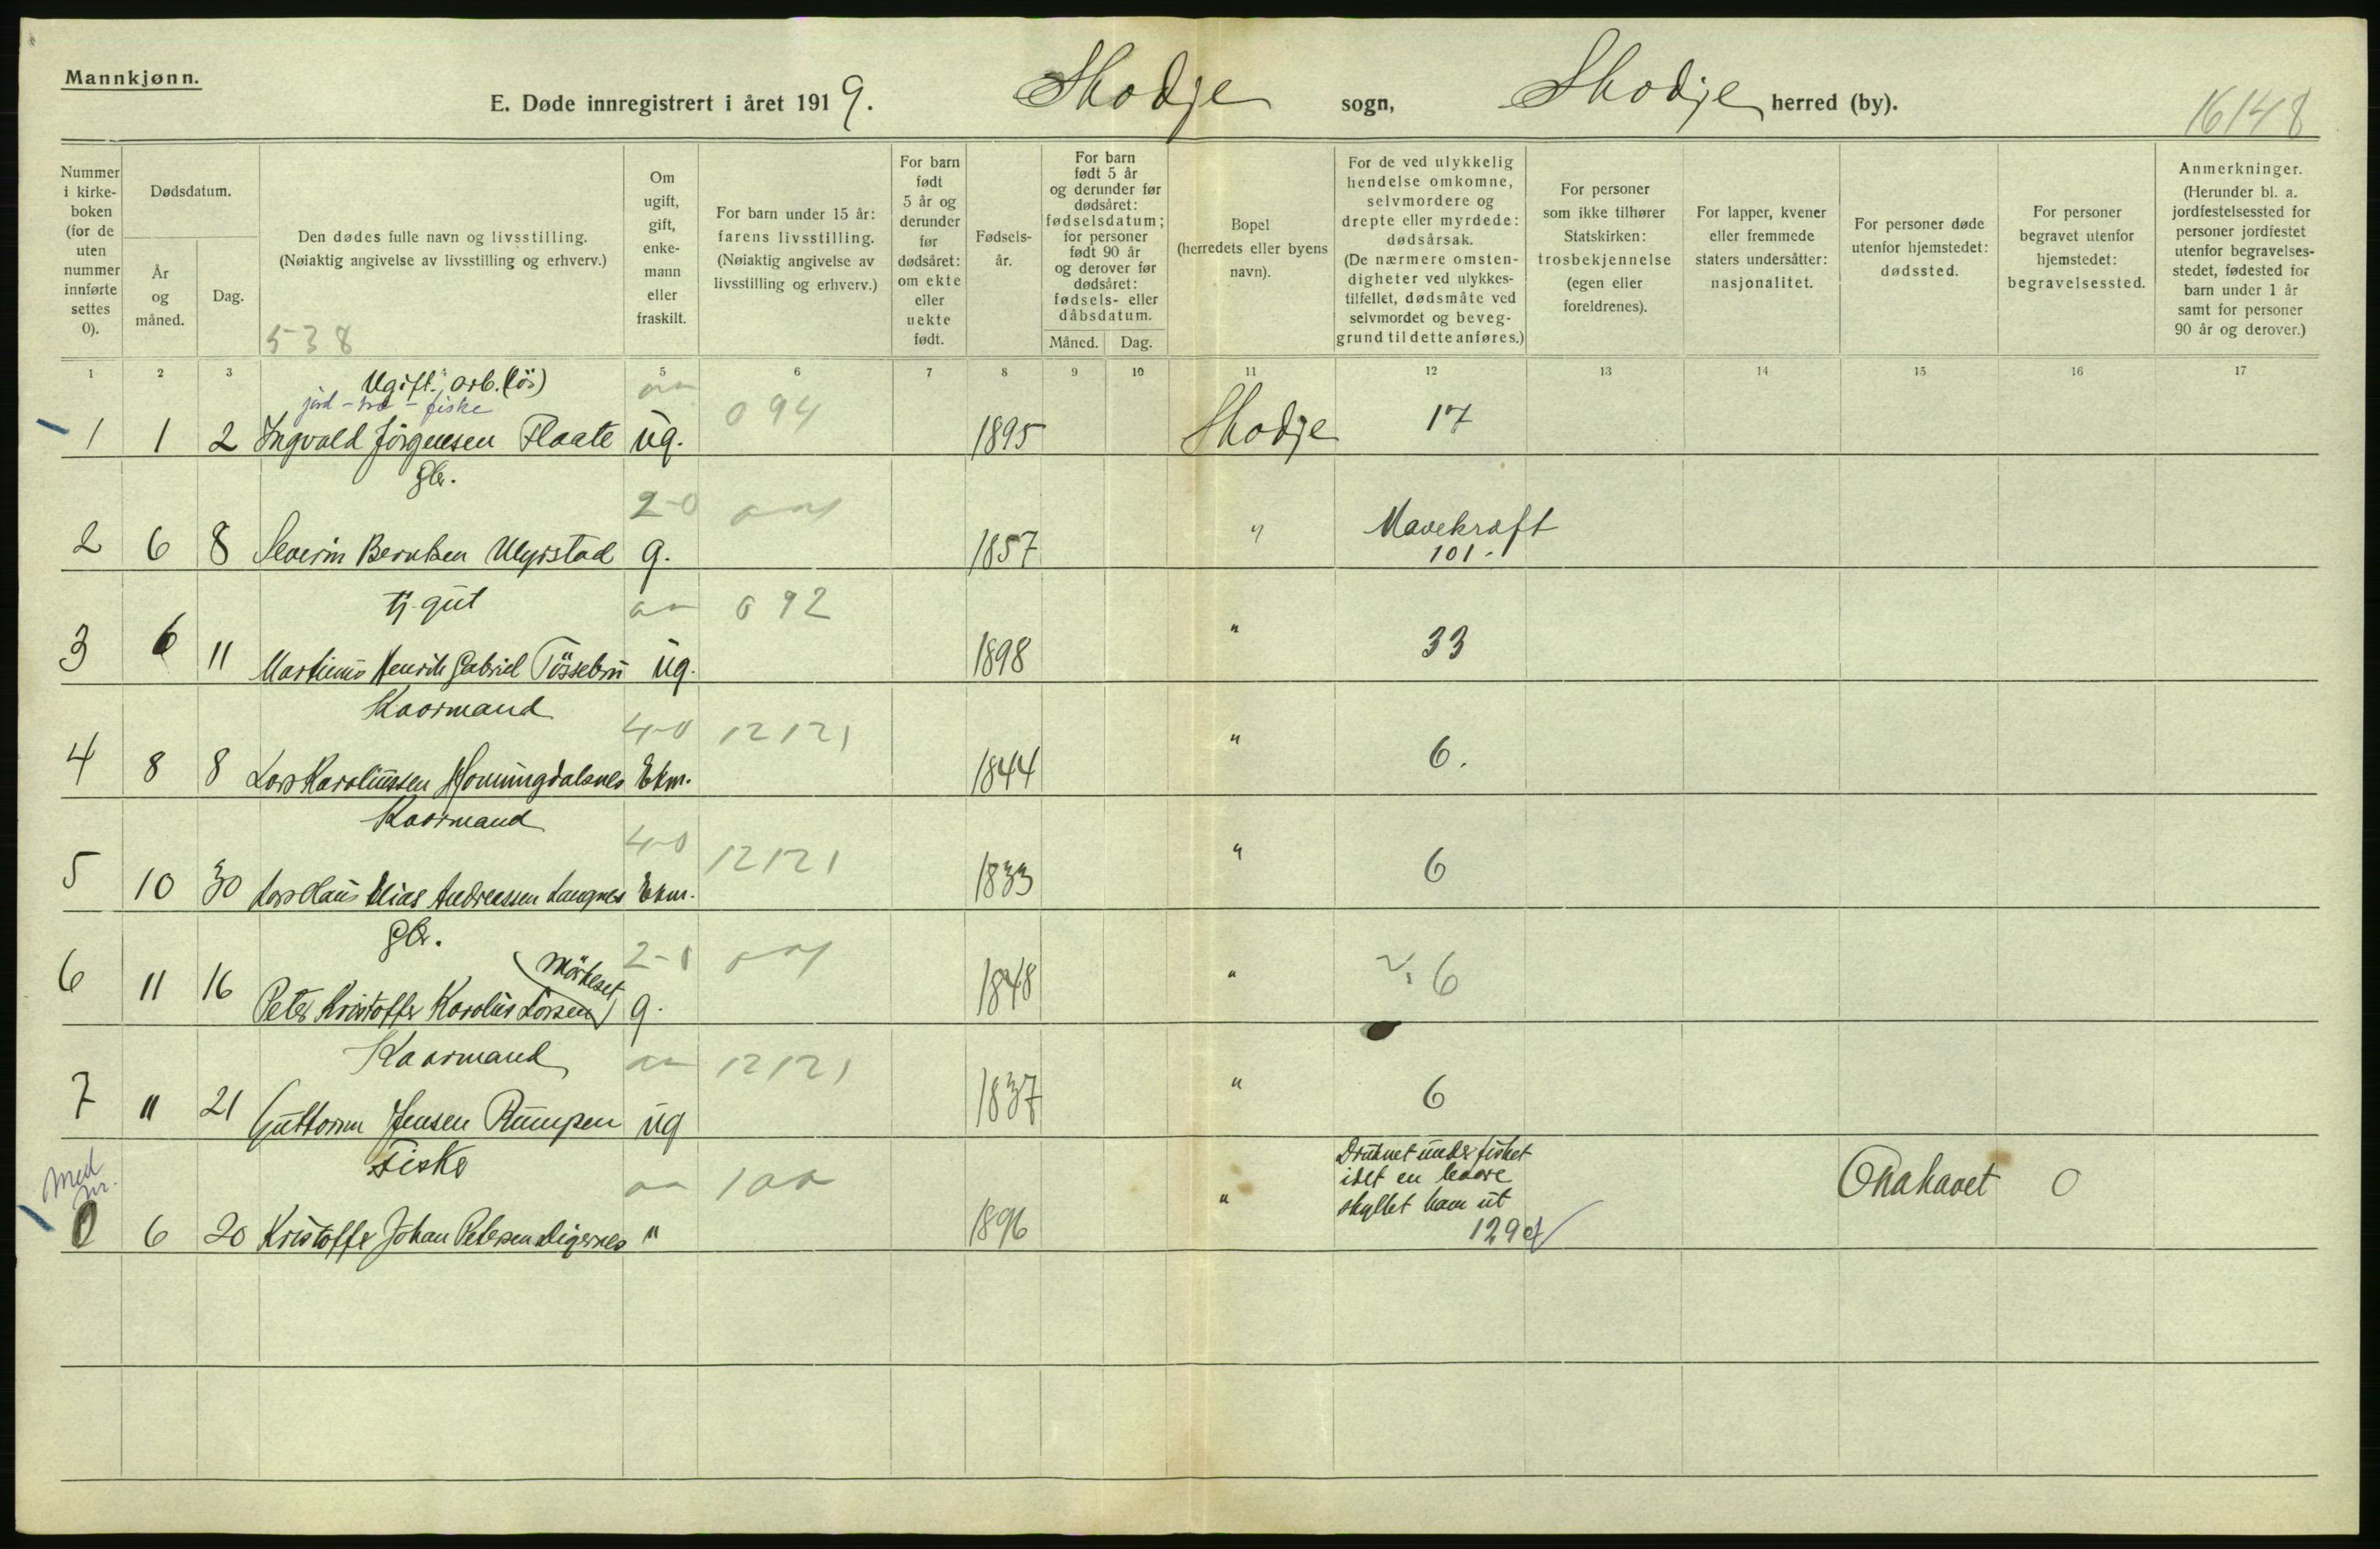 Mannkjønn.
E. Døde innregistrert i året 1919. Skodje sogn, Skodje herred (by). 16148
Nummer i kirke-boken (for de uten nummer innførte settes 0).
Dødsdatum.
År og måned.
Dag.
Den dødes fulle navn og livsstilling.
(Nøiaktig angivelse av livsstilling og erhverv.)
538
Om ugift, gift, enke-mann eller fraskilt.
For barn under 15 år: farens livsstilling. (Nøiaktig angivelse av livsstilling og erhverv.)
For barn født 5 år og derunder før dødsåret: om ekte eller uekte født.
Fødsels-år.
For barn født 5 år og derunder før dødsåret: fødselsdatum; for personer født 90 år og derover før dødsåret: fødsels- eller dåbsdatum.
Måned. Dag.
Bopel (herredets eller byens navn).
For de ved ulykkelig hendelse omkomne, selvmordere og drepte eller myrdede: dødsårsak. (De nærmere omsten-digheter ved ulykkes-tilfellet, dødsmåte ved selvmordet og beveg-grund til dette anføres.)
For personer som ikke tilhører Statskirken: trosbekjennelse (egen eller foreldrenes).
For lapper, kvener eller fremmede staters undersåtter: nasjonalitet.
For personer døde utenfor hjemstedet: dødssted.
For personer begravet utenfor hjemstedet: begravelsessted.
Anmerkninger. (Herunder bl. a. jordfestelsessted for personer jordfestet utenfor begravelses-stedet, fødested for barn under 1 år samt for personer 90 år og derover.)
1 2 3 5 6 7 8 9 10 11 12 13 14 15 16 17
Ugift. arb. (løs)
jord - - fiske 094
1 1 2 Ingvald Jörgensen Flaate ug. 1895 Skodje 17
gbr.
2-0
2 6 8 Severin Berntsen Myrstad g. 1857 " Mavekræft
101.
tj. gut 092
3 6 11 Martinus Henrik Gabriel Fössebrü ug. 1898 " 33
Kaarmand 4-0 12121
4 8 8 Lars Karolüssen Honningdalsnes Ekm. 1844 " 6.
Kaarmand 4-0 12121
5 10 30 Lars Elias Andreassen Langnes Ekm. 1833 " 6
gbr. 2-1
6 11 16 Peter Kristoffer Karolüs Larsen (Mörkeset) g. 1848 " 6
Kaarmand 12121
7 " 21 Guttorm Jensen Rumpen ug 1837 " 6
Med nr. Fisker
0 6 20 Kristoffer Johan Petersen Digernes " 1896 " Druknet under fisket
idet en
skyllet ham ut
129
Onahavet 0